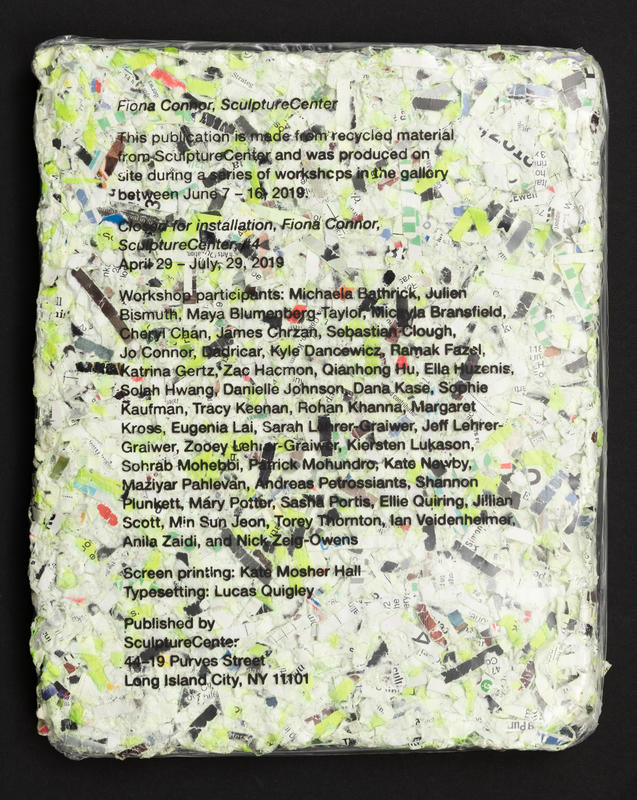 Fiona Connor, SculptureCenter
This publication is made from recycled material
from SculptureCenter and was produced on
site during a series of workshops in the gallery
between June 7 – 16, 2019.
Closed for installation, Fiona Connor,
SculptureCenter, #4
April 29 – July, 29, 2019
Workshop participants: Michaela Bathrick, Julien
Bismuth, Maya Blumenberg-Taylor, Michyla Bransfield,
Cheryl Chan, James Chrzan, Sebastian Clough,
Jo Connor, Dadricar, Kyle Dancewicz, Ramak Fazel,
Katrina Gertz, Zac Hacmon, Qianhong Hu, Ella Huzenis,
Solah Hwang, Danielle Johnson, Dana Kase, Sophie
Kaufman, Tracy Keenan, Rohan Khanna, Margaret
Kross, Eugenia Lai, Sarah Lehrer-Graiwer, Jeff Lehrer-
Graiwer, Zooey Lehrer-Graiwer, Kiersten Lukason,
Sohrab Mohebbi, Patrick Mohundro, Kate Newby,
Maziyar Pahlevan, Andreas Petrossiants, Shannon
Plunkett, Mary Potter, Sasha Portis, Ellie Quiring, Jillian
Scott, Min Sun Jeon, Torey Thornton, Ian Veidenheimer,
Anila Zaidi, and Nick Zeig-Owens
Screen printing: Kate Mosher Hall
Typesetting: Lucas Quigley
Published by
SculptureCenter
44–19 Purves Street
Long Island City, NY 11101